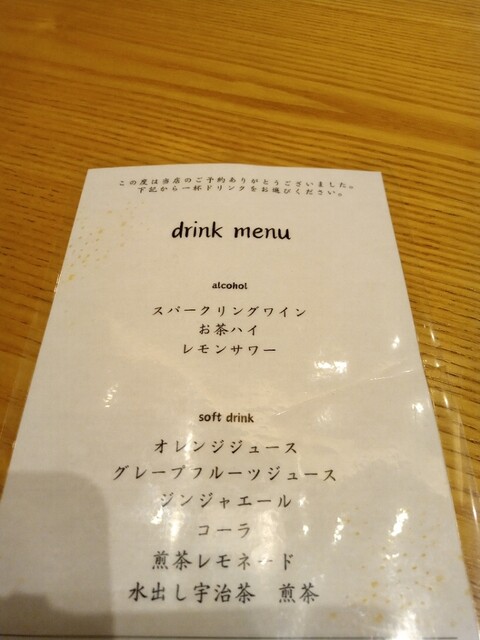 この度は当店のご予約ありがとうございました。
下記から一杯ドリンクをお選びください。
drink menu
alcohol
スパークリングワイン
お茶ハイ
レモンサワー
soft drink
オレンジジュース
グレープフルーツジュース
ジンジャエール
コーラ
煎茶レモネード
水出し宇治茶　煎茶